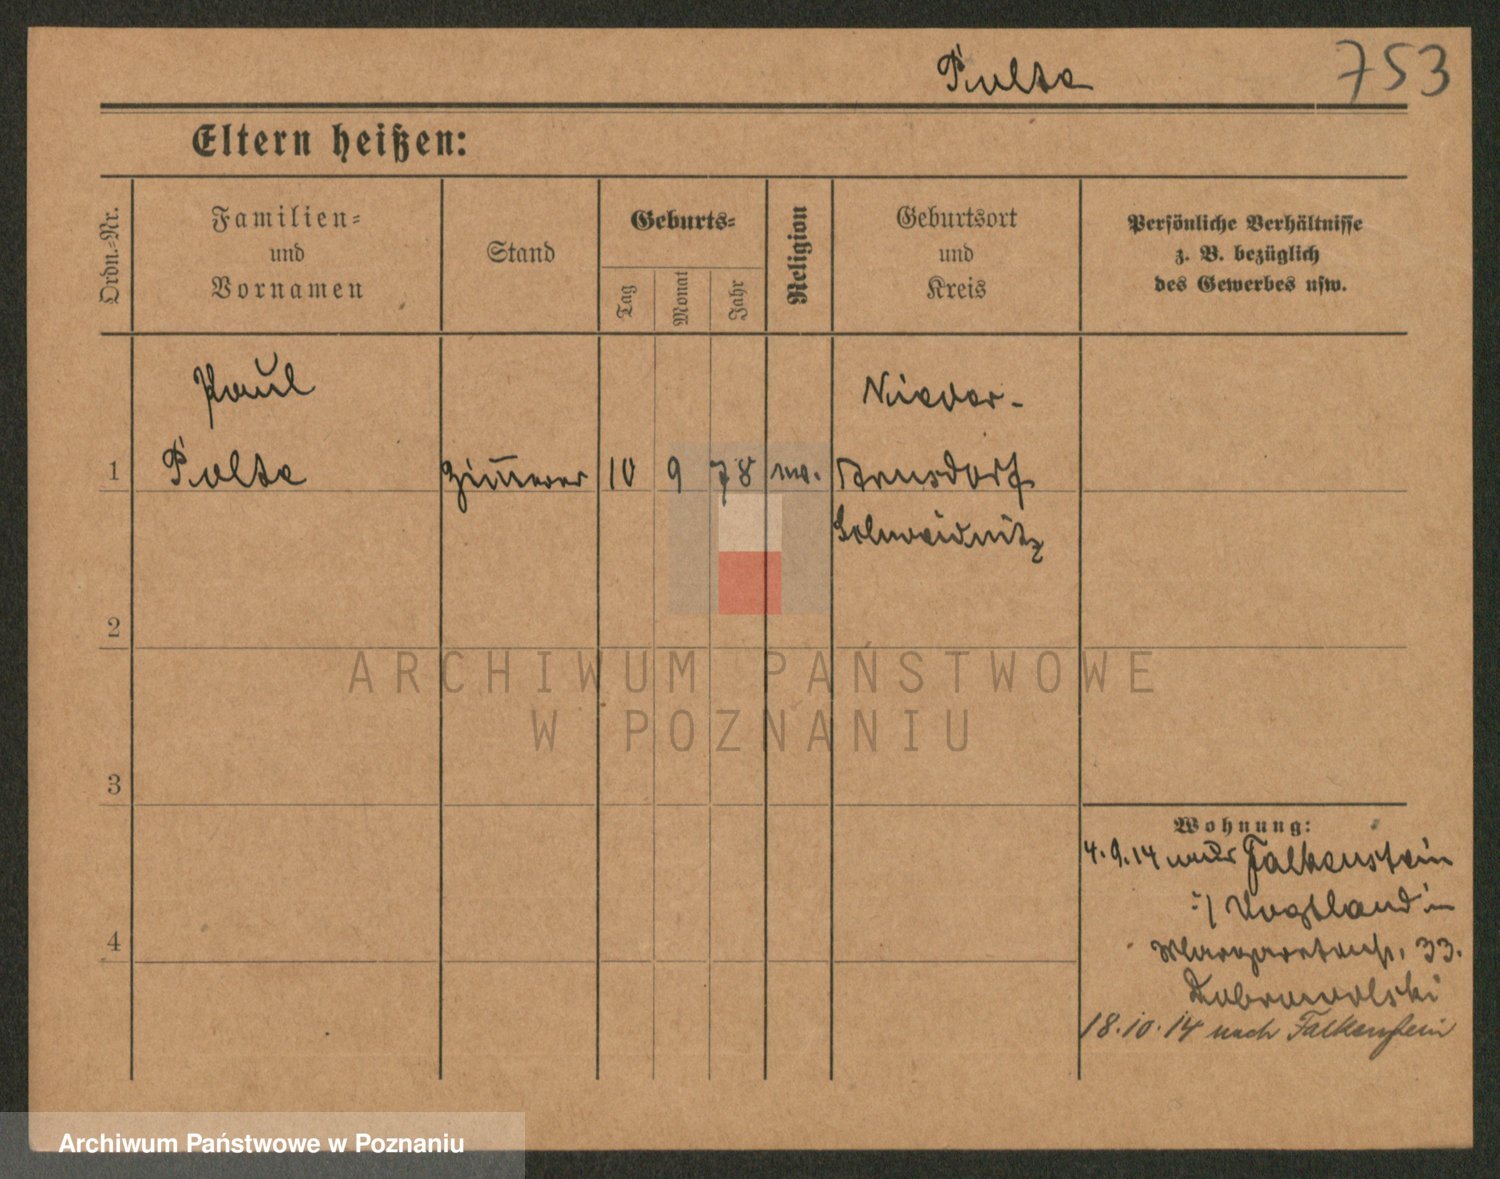 Pulte
753
Eltern heißen:
Ordn.-Nr.
Familien-
und
Vornamen
Stand
Geburts-
Tag
Monat
Jahr
Religion
Geburtsort
und
Kreis
Persönliche Verhältnisse
z. B. bezüglich
des Gewerbes usw.
Paul
Nieder-
1
Pulte
10
9
78
Arnsdorf
Schweidnitz
2
ARCHIWUM PAŃSTWOWE
W POZNANIU
3
Wohnung:
4.9.14 Falkenstein
Vogtland
33.
4
Dobrowolski
18.10.14 nach Falkenstein
Archiwum Państwowe w Poznaniu